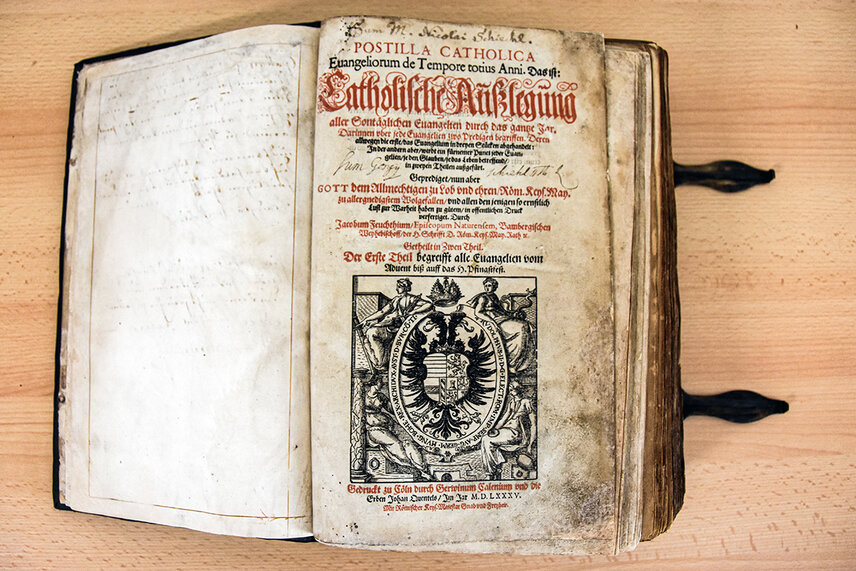 Sum M. Nicolai Schickl.
POSTILLA CATHOLICA
Euangeliorum de Tempore totius Anni. Das ist:
Catholische Außlegung
aller Sontäglichen Euangelien durch das gantze Jar,
Darinnen vber jede Euangelien zwo Predigen begriffen. Deren
allwegen die erste/das Euangelium in dreyen Stücken abgehandelt:
In der andern aber/wirdt ein fürnemer Punct jeder Euan-
gelien/je den Glauben/je das Leben betreffend/
in zweyen Theilen außgefürt.
Geprediget/nun aber
GOTT dem Allmechtigen zu Lob vnd ehren/Röm. Keys. May.
zu allergnedigstem Wolgefallen/vnd allen den jenigen so ernstlich
Lust zur Warheit haben zu gutem/in offentlichen Druck
verfertiget. Durch
Jacobum Feuchthium/Episcopum Naturensem, Bambergischen
Weyhebischoff/der H. Schrifft D. Röm. Keys. May. Rath ꝛc.
Getheilt in Zwen Theil.
Der Erste Theil begreifft alle Euangelien vom
Aduent biß auff das H. Pfingstfest.
Gedruckt zu Cöln durch Gerwinum Calenium vnd die
Erben Johan Quentels/Im Jar M.D.LXXXV.
Mit Römischer Keys. Maiestat Gnad vnd Freyheit.